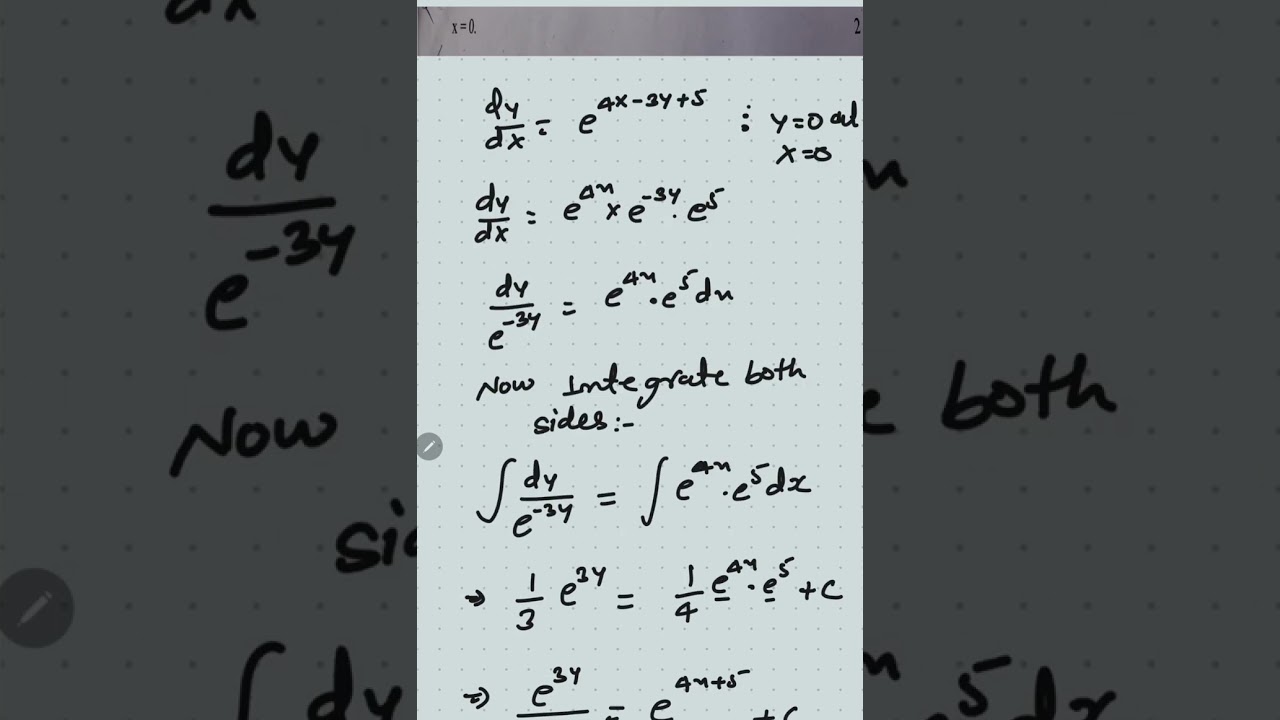 x = 0.
2
dy/dx = e^{4x-3y+5} ; y=0 at x=0
dy/dx = e^{4x} × e^{-3y} · e^5
dy/e^{-3y} = e^{4x} · e^5 dx
Now Integrate both
sides:-
∫ dy/e^{-3y} = ∫ e^{4x} · e^5 dx
⇒ 1/3 e^{3y} = 1/4 e^{4x} · e^5 + C
⇒ e^{3y} = e^{4x+5} + C